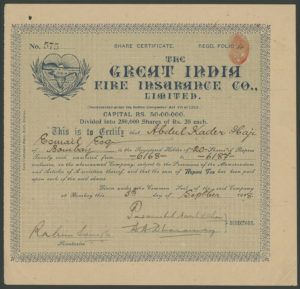 No. 575
SHARE CERTIFICATE.
REGD. FOLIO
THE
GREAT INDIA
FIRE INSURANCE CO.,
LIMITED.
(Incorporated under the Indian Companies' Act VII of 1913)
CAPITAL RS. 50,00,000.
Divided into 250,000 Shares of Rs. 20 each.
This is to Certify that Abdul Kader Haji
Esmail Esq
of Bombay is the Registered Holder of -20- Shares of Rupees
Twenty each numbered from -6168- to -6187-
inclusive, in the above-named Company, subject to the Provisions of the Memorandum
and Articles of Association thereof, and that the sum of Rupees Ten has been paid
upon each of the said shares.
Given under the Common Seal of the said Company
at Bombay this day of 19
DIRECTORS.